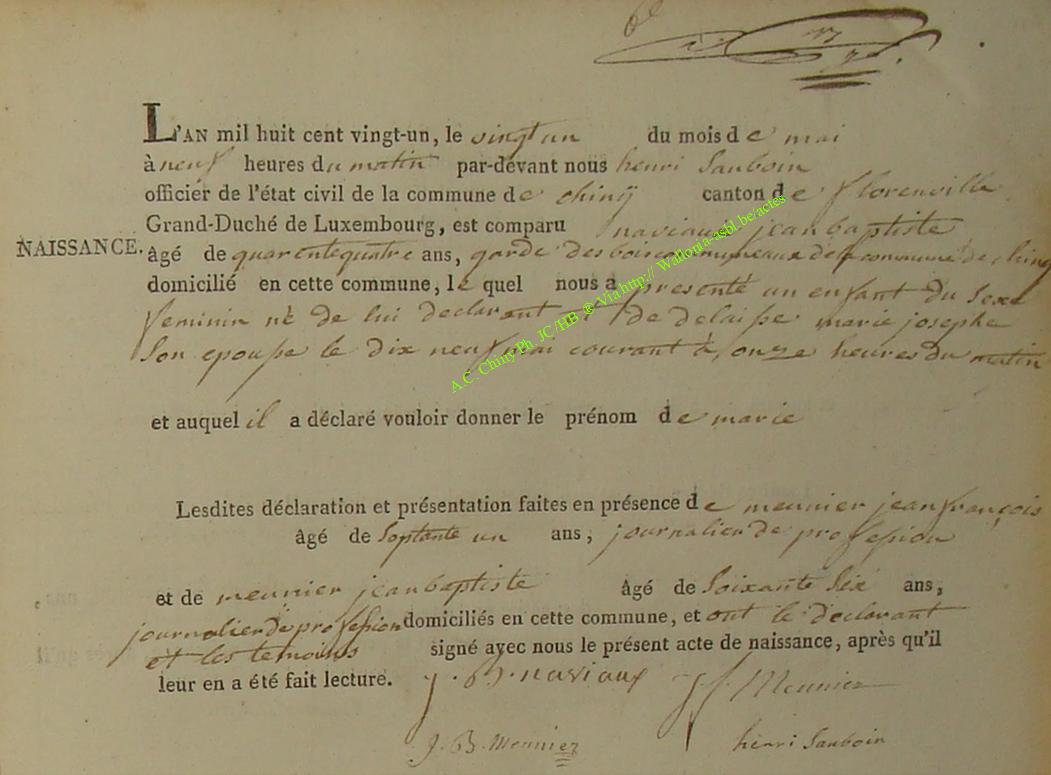 L'AN mil huit cent vingt-un, le vingt un du mois de mai
à neuf heures du matin par-devant nous henri Sauboin
officier de l'état civil de la commune de chinÿ canton de florenville
Grand-Duché de Luxembourg, est comparu naveaux jean baptiste
NAISSANCE. âgé de quarente quatre ans, garde des bois communeaux de la commune de chinÿ
domicilié en cette commune, le quel nous a presenté un enfant du sexe
feminin né de lui declarant et de delaisse marie josephe
Son epouse le dix neuf mai courant à onze heures du matin
et auquel il a déclaré vouloir donner le prénom de marie
Lesdites déclaration et présentation faites en présence de meunier jean françois
âgé de Soptante un ans, journalier de profession
et de meunier jean baptiste âgé de Soixante Six ans,
journalier de profession domiciliés en cette commune, et ont le declarant
et les temoins signé avec nous le présent acte de naissance, après qu'il
leur en a été fait lecture. J. B. naviaux J f Meunier
J. B. Meunier henri Sauboin
A.C. Chiny Ph. JC/HB ® Via http:// Wallonia-asbl.be/actes